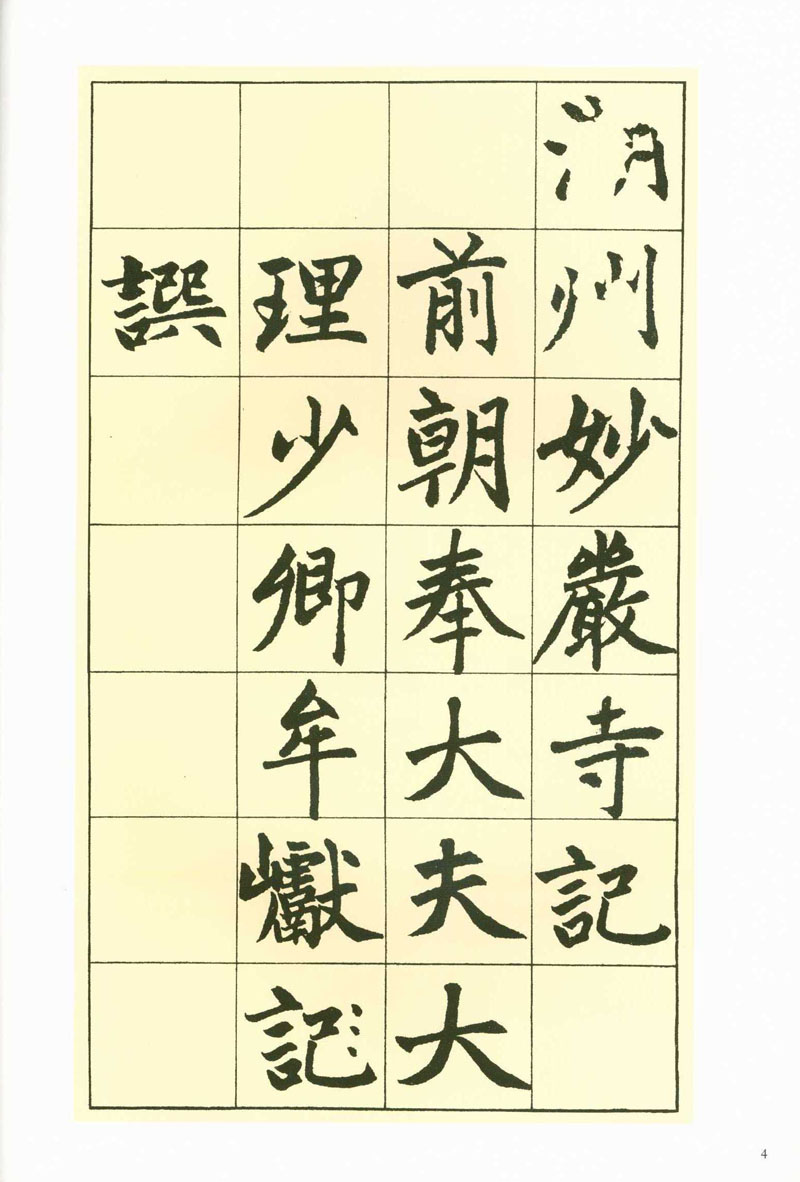 湖州妙嚴寺記
前朝奉大夫大
理少卿牟巘記
譔
4